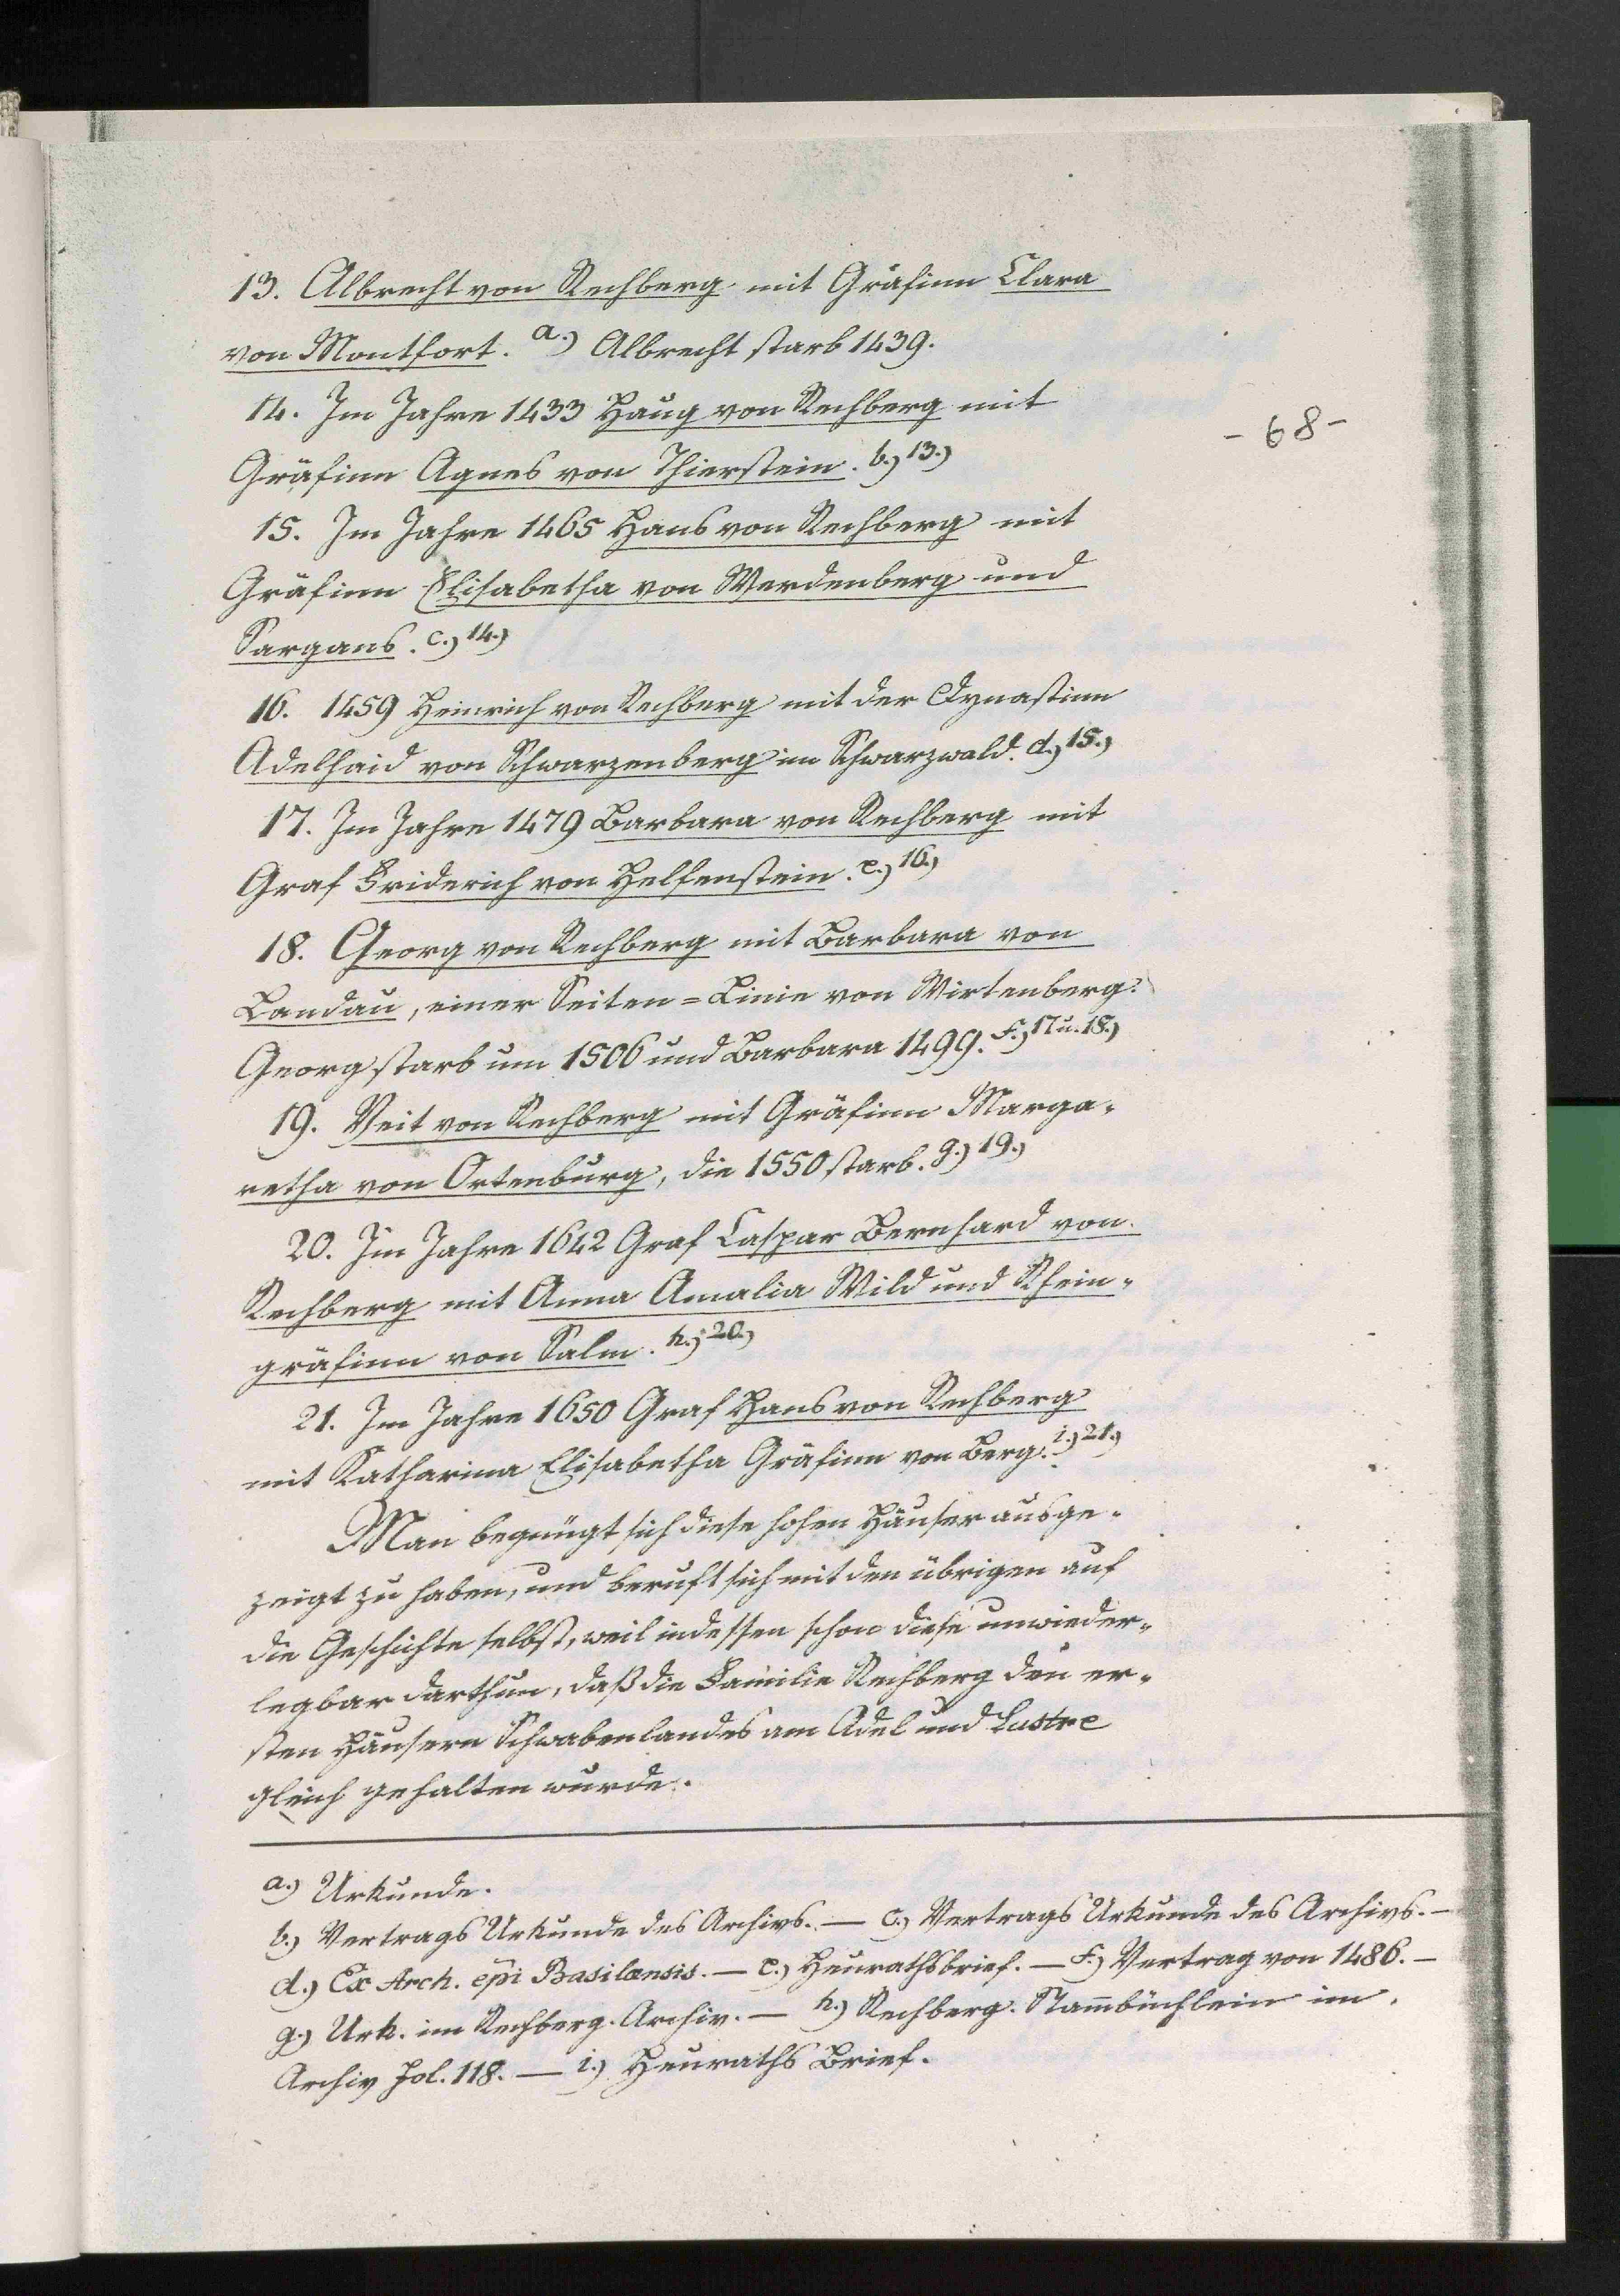 13. Albrecht von Rechberg mit Gräfinn Clara
von Montfort. a.) Albrecht starb 1439.
14. Im Jahre 1433 Haug von Rechberg mit
- 68 -
Gräfinn Agnes von Thierstein. b.) 13.)
15. Im Jahre 1465 Hans von Rechberg mit
Gräfinn Elisabetha von Werdenberg und
Sargans. c.) 14.)
16. 1459 Heinrich von Rechberg mit der Dynastinn
Adelhaid von Schwarzenberg im Schwarzwald. d.) 15.)
17. Im Jahre 1479 Barbara von Rechberg mit
Graf Friderich von Helfenstein. e.) 16.)
18. Georg von Rechberg mit Barbara von
Landau, einer Seiten=Linie von Wirtenberg.
Georg starb um 1506 und Barbara 1499. f.) 17 u. 18.)
19. Veit von Rechberg mit Gräfinn Marga-
retha von Ortenburg, die 1550 starb. g.) 19.)
20. Im Jahre 1642 Graf Caspar Bernhard von
Rechberg mit Anna Amalia Wild und Rhein-
gräfinn von Salm. h.) 20.)
21. Im Jahre 1650 Graf Hans von Rechberg
mit Katharina Elisabetha Gräfinn von Berg. i.) 21.)
Man begnügt sich diese hohen Häuser ausge-
zeigt zu haben, und beruft sich mit den übrigen auf
die Geschichte selbst, weil indessen schon diese unwieder-
legbar darthun, daß die Familie Rechberg den er-
sten Häusern Schwabenlandes am Adel und Lustre
gleich gehalten wurde.
a.) Urkunde.
b.) Vertrags Urkunde des Archivs. — c.) Vertrags Urkunde des Archivs. —
d.) Ex Arch. epi Basilænsis. — e.) Heurathsbrief. — f.) Vertrag von 1486. —
g.) Urk. im Rechberg. Archiv. — h.) Rechberg. Stam̄büchlein im
Archiv Fol. 118. — i.) Heuraths Brief.